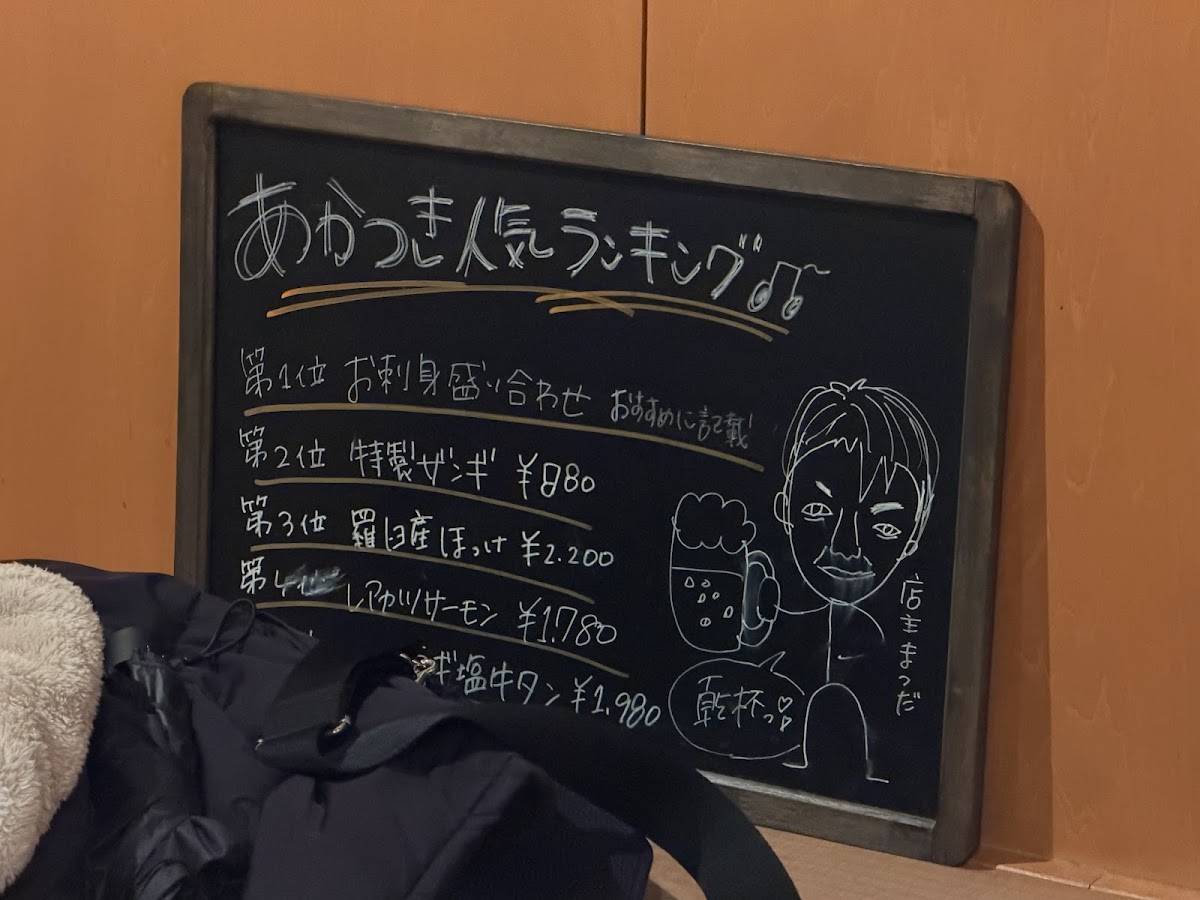 あかつき人気ランキング♫
第1位 お刺身盛り合わせ おすすめに記載
第2位 特製ザンギ ¥880
第3位 羅臼産ほっけ ¥2.200
第4位 レアカツサーモン ¥1.780
ギ塩牛タン ¥1.980
乾杯っ♡
店主まつだ